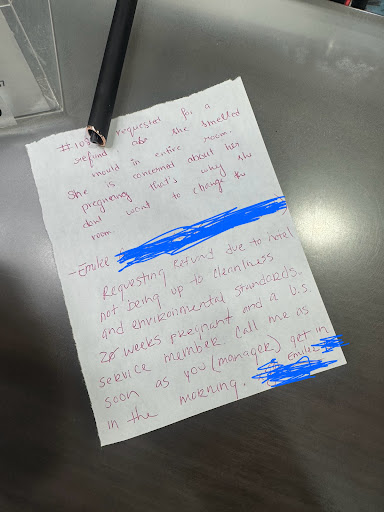 requested for a
refund, she smelled
mould in entire room.
She is concernet about her
pregning that's why she
dont want to change the
room.
-Emilee
Requesting refund due to hotel
not being up to cleanliness
and environmental standards.
28 weeks pregnant and a U.S.
service member. Call me as
soon as you (manager) get in
in the morning.
Emilee